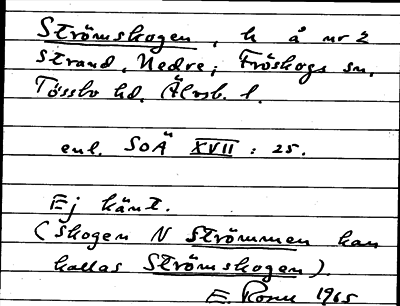 Strömskogen, h å nr 2
Strand, Nedre, Fröskogs sn,
Tössbo hd, Älvsb. l.
enl. SOÄ XVII : 25.
Ej känt.
(Skogen N Strömmen kan
kallas Strömskogen).
E. 1965